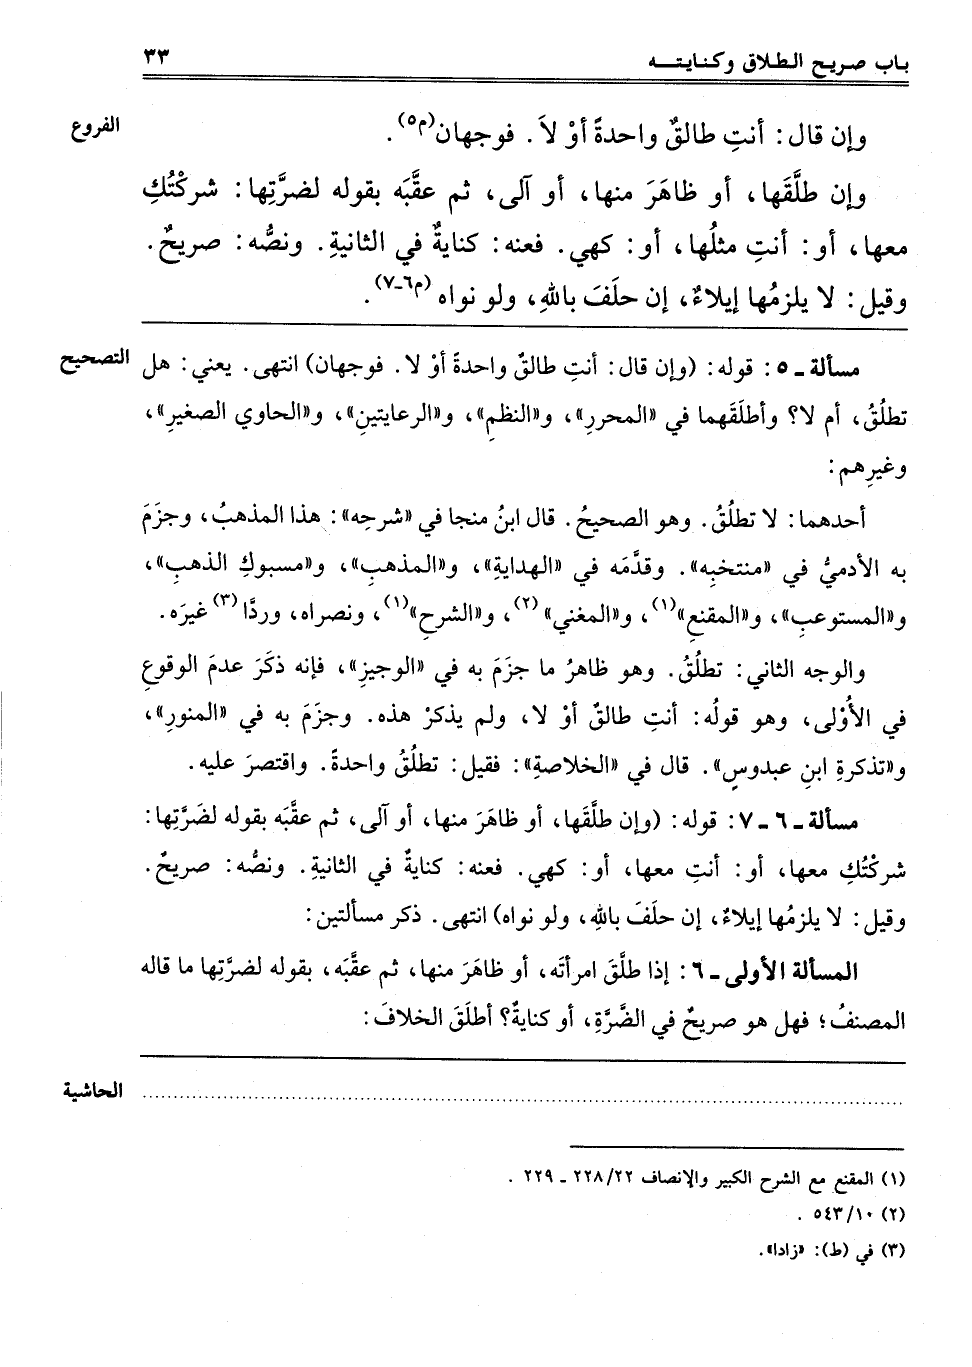 باب صريح الطلاق وكنايتـــه ٣٣
الفروع
وإن قال: أنتِ طالقٌ واحدةً أوْ لاَ. فوجهان(م٥).
وإن طلَّقَها، أو ظاهَرَ منها، أو آلى، ثم عقَّبَه بقوله لضرَّتِها: شركتُكِ
معها، أو: أنتِ مثلُها، أو: كهي. فعنه: كنايةٌ في الثانيةِ. ونصُّه: صريحٌ.
وقيل: لا يلزمُها إيلاءٌ، إن حلَفَ باللهِ، ولو نواه(م٦ـ٧).
التصحيح
مسألة ـ ٥: قوله: (وإن قال: أنتِ طالقٌ واحدةً أوْ لا. فوجهان) انتهى. يعني: هل
تطلُقُ، أم لا؟ وأطلَقَهما في «المحررِ»، و«النظمِ»، و«الرعايتينِ»، و«الحاوي الصغيرِ»،
وغيرِهم:
أحدهما: لا تطلُقُ. وهو الصحيحُ. قال ابنُ منجا في «شرحِه»: هذا المذهبُ، وجزَمَ
به الأدميُّ في «منتخبِه». وقدَّمَه في «الهدايةِ»، و«المذهبِ»، و«مسبوكِ الذهبِ»،
و«المستوعبِ»، و«المقنعِ»(١)، و«المغني»(٢)، و«الشرحِ»(١)، ونصراه، وردَّا(٣) غيرَه.
والوجه الثاني: تطلُقُ. وهو ظاهرُ ما جزَمَ به في «الوجيزِ»، فإنه ذكَرَ عدمَ الوقوعِ
في الأُوْلى، وهو قولُه: أنتِ طالقٌ أوْ لا، ولم يذكرْ هذه. وجزَمَ به في «المنورِ»،
و«تذكرةِ ابنِ عبدوسٍ». قال في «الخلاصةِ»: فقيل: تطلُقُ واحدةً. واقتصرَ عليه.
مسألة ـ ٦ ـ ٧: قوله: (وإن طلَّقَها، أو ظاهَرَ منها، أو آلى، ثم عقَّبَه بقوله لضَرَّتِها:
شركْتُكِ معها، أو: أنتِ معها، أو: كهي. فعنه: كنايةٌ في الثانيةِ. ونصُّه: صريحٌ.
وقيل: لا يلزمُها إيلاءٌ، إن حلَفَ باللهِ، ولو نواه) انتهى. ذكر مسألتين:
المسألة الأولى ـ ٦: إذا طلَّقَ امرأتَه، أو ظاهَرَ منها، ثم عقَّبَه، بقوله لضرَّتِها ما قاله
المصنفُ؛ فهل هو صريحٌ في الضَّرَّةِ، أو كنايةٌ؟ أطلَقَ الخلافَ:
الحاشية
(١) المقنع مع الشرح الكبير والإنصاف ٢٢/ ٢٢٨ ـ ٢٢٩ .
(٢) ١٠/ ٥٤٣ .
(٣) في (ط): «زادا».